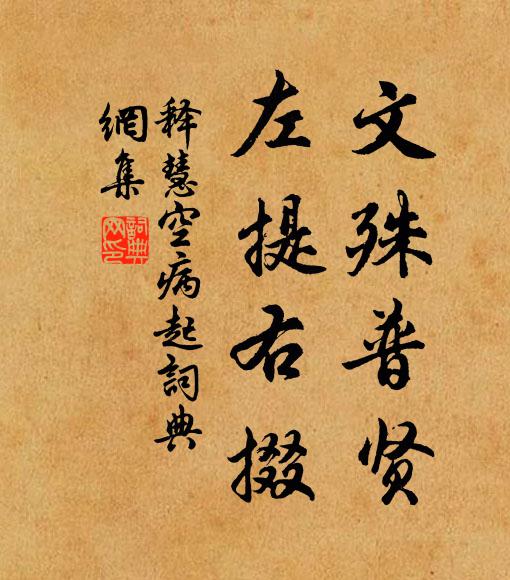 文殊普贤
左提右掇
释慧空病起詞典
網集
詞典
网印